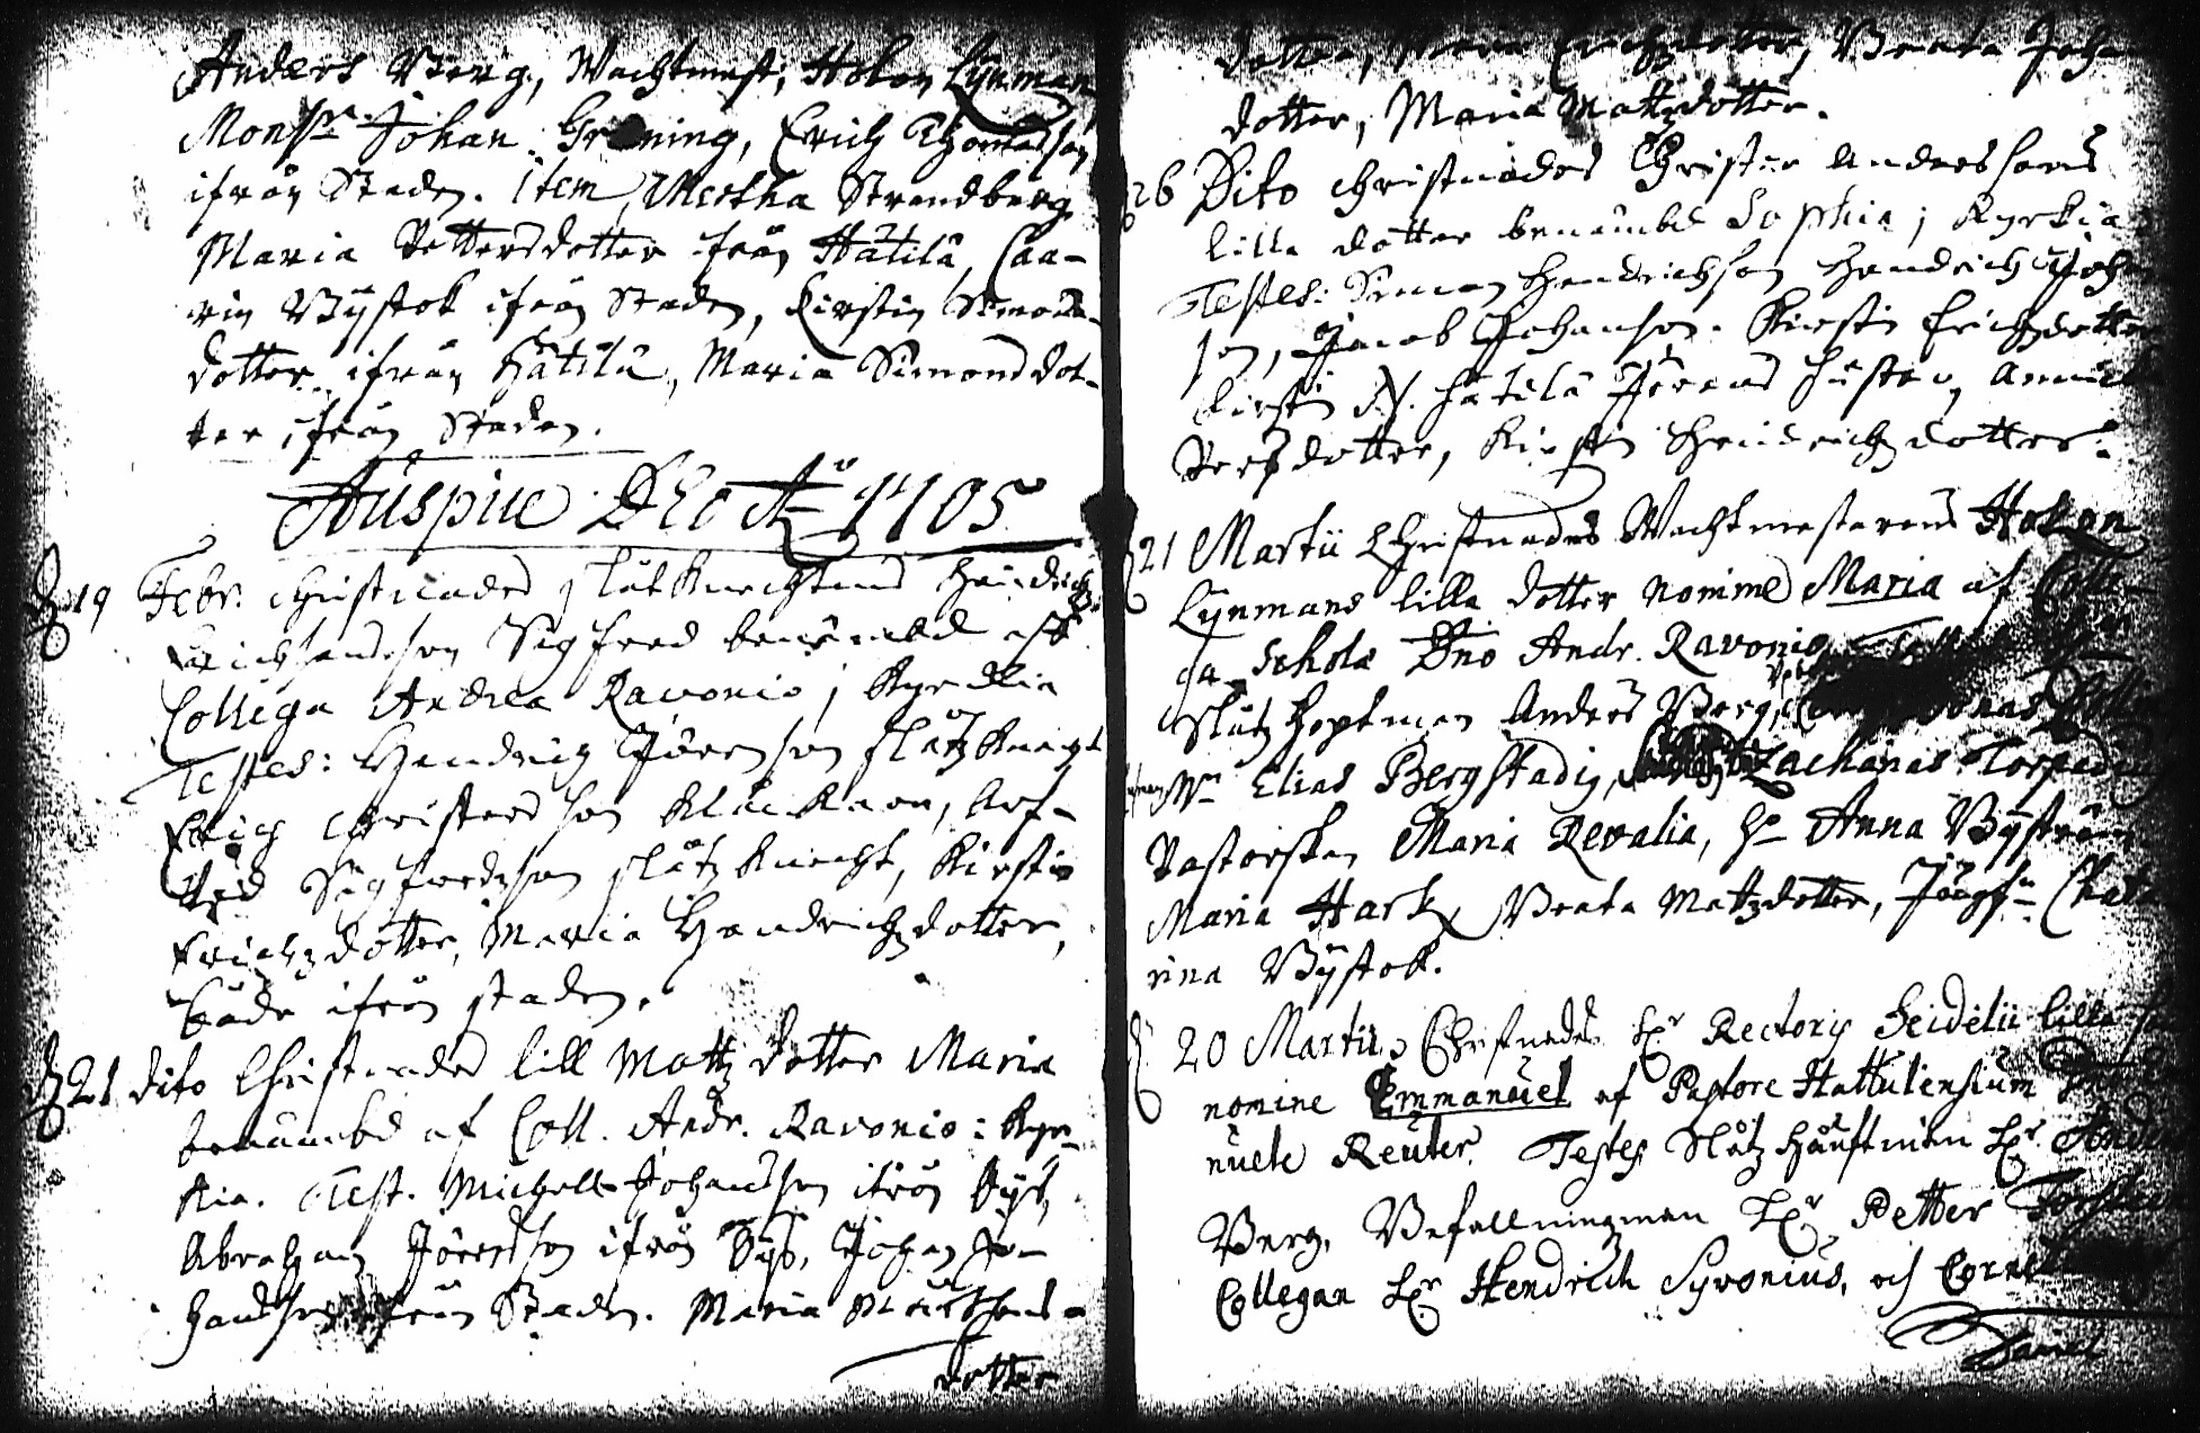 Anders Berg, Wachtmest; Hokon Lÿnman
Monsr Johan Gr ning, Erich Thomasson
ifrån Staden. item, Mertha Strandberg
Maria Pettersdotter från Hätilä, Caa-
rin Bÿstok ifrån Staden, Kirstin Simons-
dotter ifrån Hätilä, Maria Simonsdot-
ter ifrån Staden.
Auspice Deo Aõ 1705
D 19 Febr. christnades slåtzknechtens Hendrich
Erichssons son Sigfred benämbd aff
Collega Andrea Ravonio i Kyrckia
Testes: Hendrich Jörensson slåtzknegt
Erich Christersson Klåckare, Arf-
wed Sigfredzson slåtzknecht, Kirstin
Erichzdotter, Maria Hendrichzdotter,
både ifrån staden.
D 21 dito Christnades lill Mattz dotter Maria
benämbd af Coll. Andr. Ravonio i Kyr-
kia. Test. Michell Johansson ifrån Byß,
Abraham Jörensson ifrån Byß, Johan Jo-
hansson ifrån Staden. Maria Markhens-
dotter
dotter, Maria Erichzdotter, Beata Joha
dotter, Maria Mattzdotter.
26 Dito christnades Christer Anderssons
lilla dotter benämbd Sophia i Kyrkia
Testes: Simon Hendrichson Hendrich Joha
son, Jacob Johanson. Kirstin Erichzdotter
Kirstin N. Hätilä Jörens hustru, Annicka
Persdotter, Kirstin Hendrichzdotter.
D 21 Martii Christnades Wachtmestarens Hokon
Lÿnmans lilla dotter nomine Maria af Colle-
ga Scholæ Dno Andr. Ravonio
Slåtzhoptman Anders Berg, Jonas
Mr Elias Bergstadig, Zacharias Torpadi
Pastorskan Maria Revalia, Ho Anna Bÿström
Maria Hark, Beata Mattzdotter, Jungfru Catha
rina Bÿstok.
D 20 Martii Christnades Hr Rectoris Seidelii lilla son
nomine Emmanuel af Pastore Hattulensium
nuele Reuter. Testes Slåtz Håuftman Hr Ande
Berg, Befallningzman Hr Petter
Collegan Hr Hendrich Syronius, och Corne
Daniel